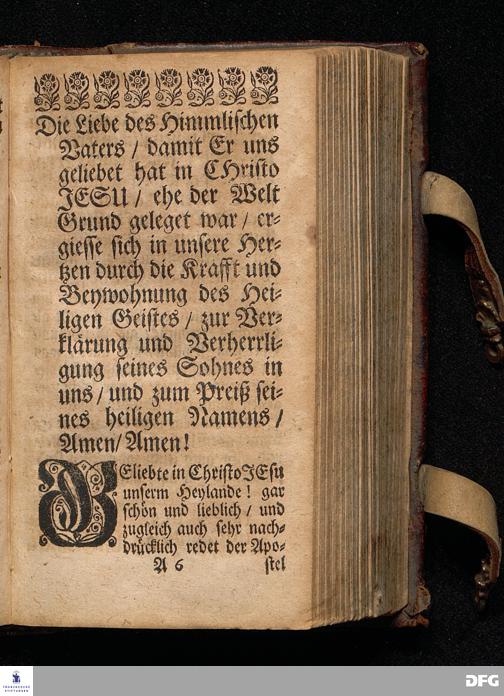 Die Liebe des Himmlischen
Vaters / damit Er uns
geliebet hat in CHristo
JESU / ehe der Welt
Grund geleget war / er-
giesse sich in unsere Her-
tzen durch die Krafft und
Beywohnung des Hei-
ligen Geistes / zur Ver-
klärung und Verherrli-
gung seines Sohnes in
uns / und zum Preiß sei-
nes heiligen Namens /
Amen / Amen!
GEliebte in Christo JEsu
unserm Heylande! gar
schön und lieblich / und
zugleich auch sehr nach-
drücklich redet der Apo-
A 6 stel
FRANCKESCHE
STIFTUNGEN
DFG